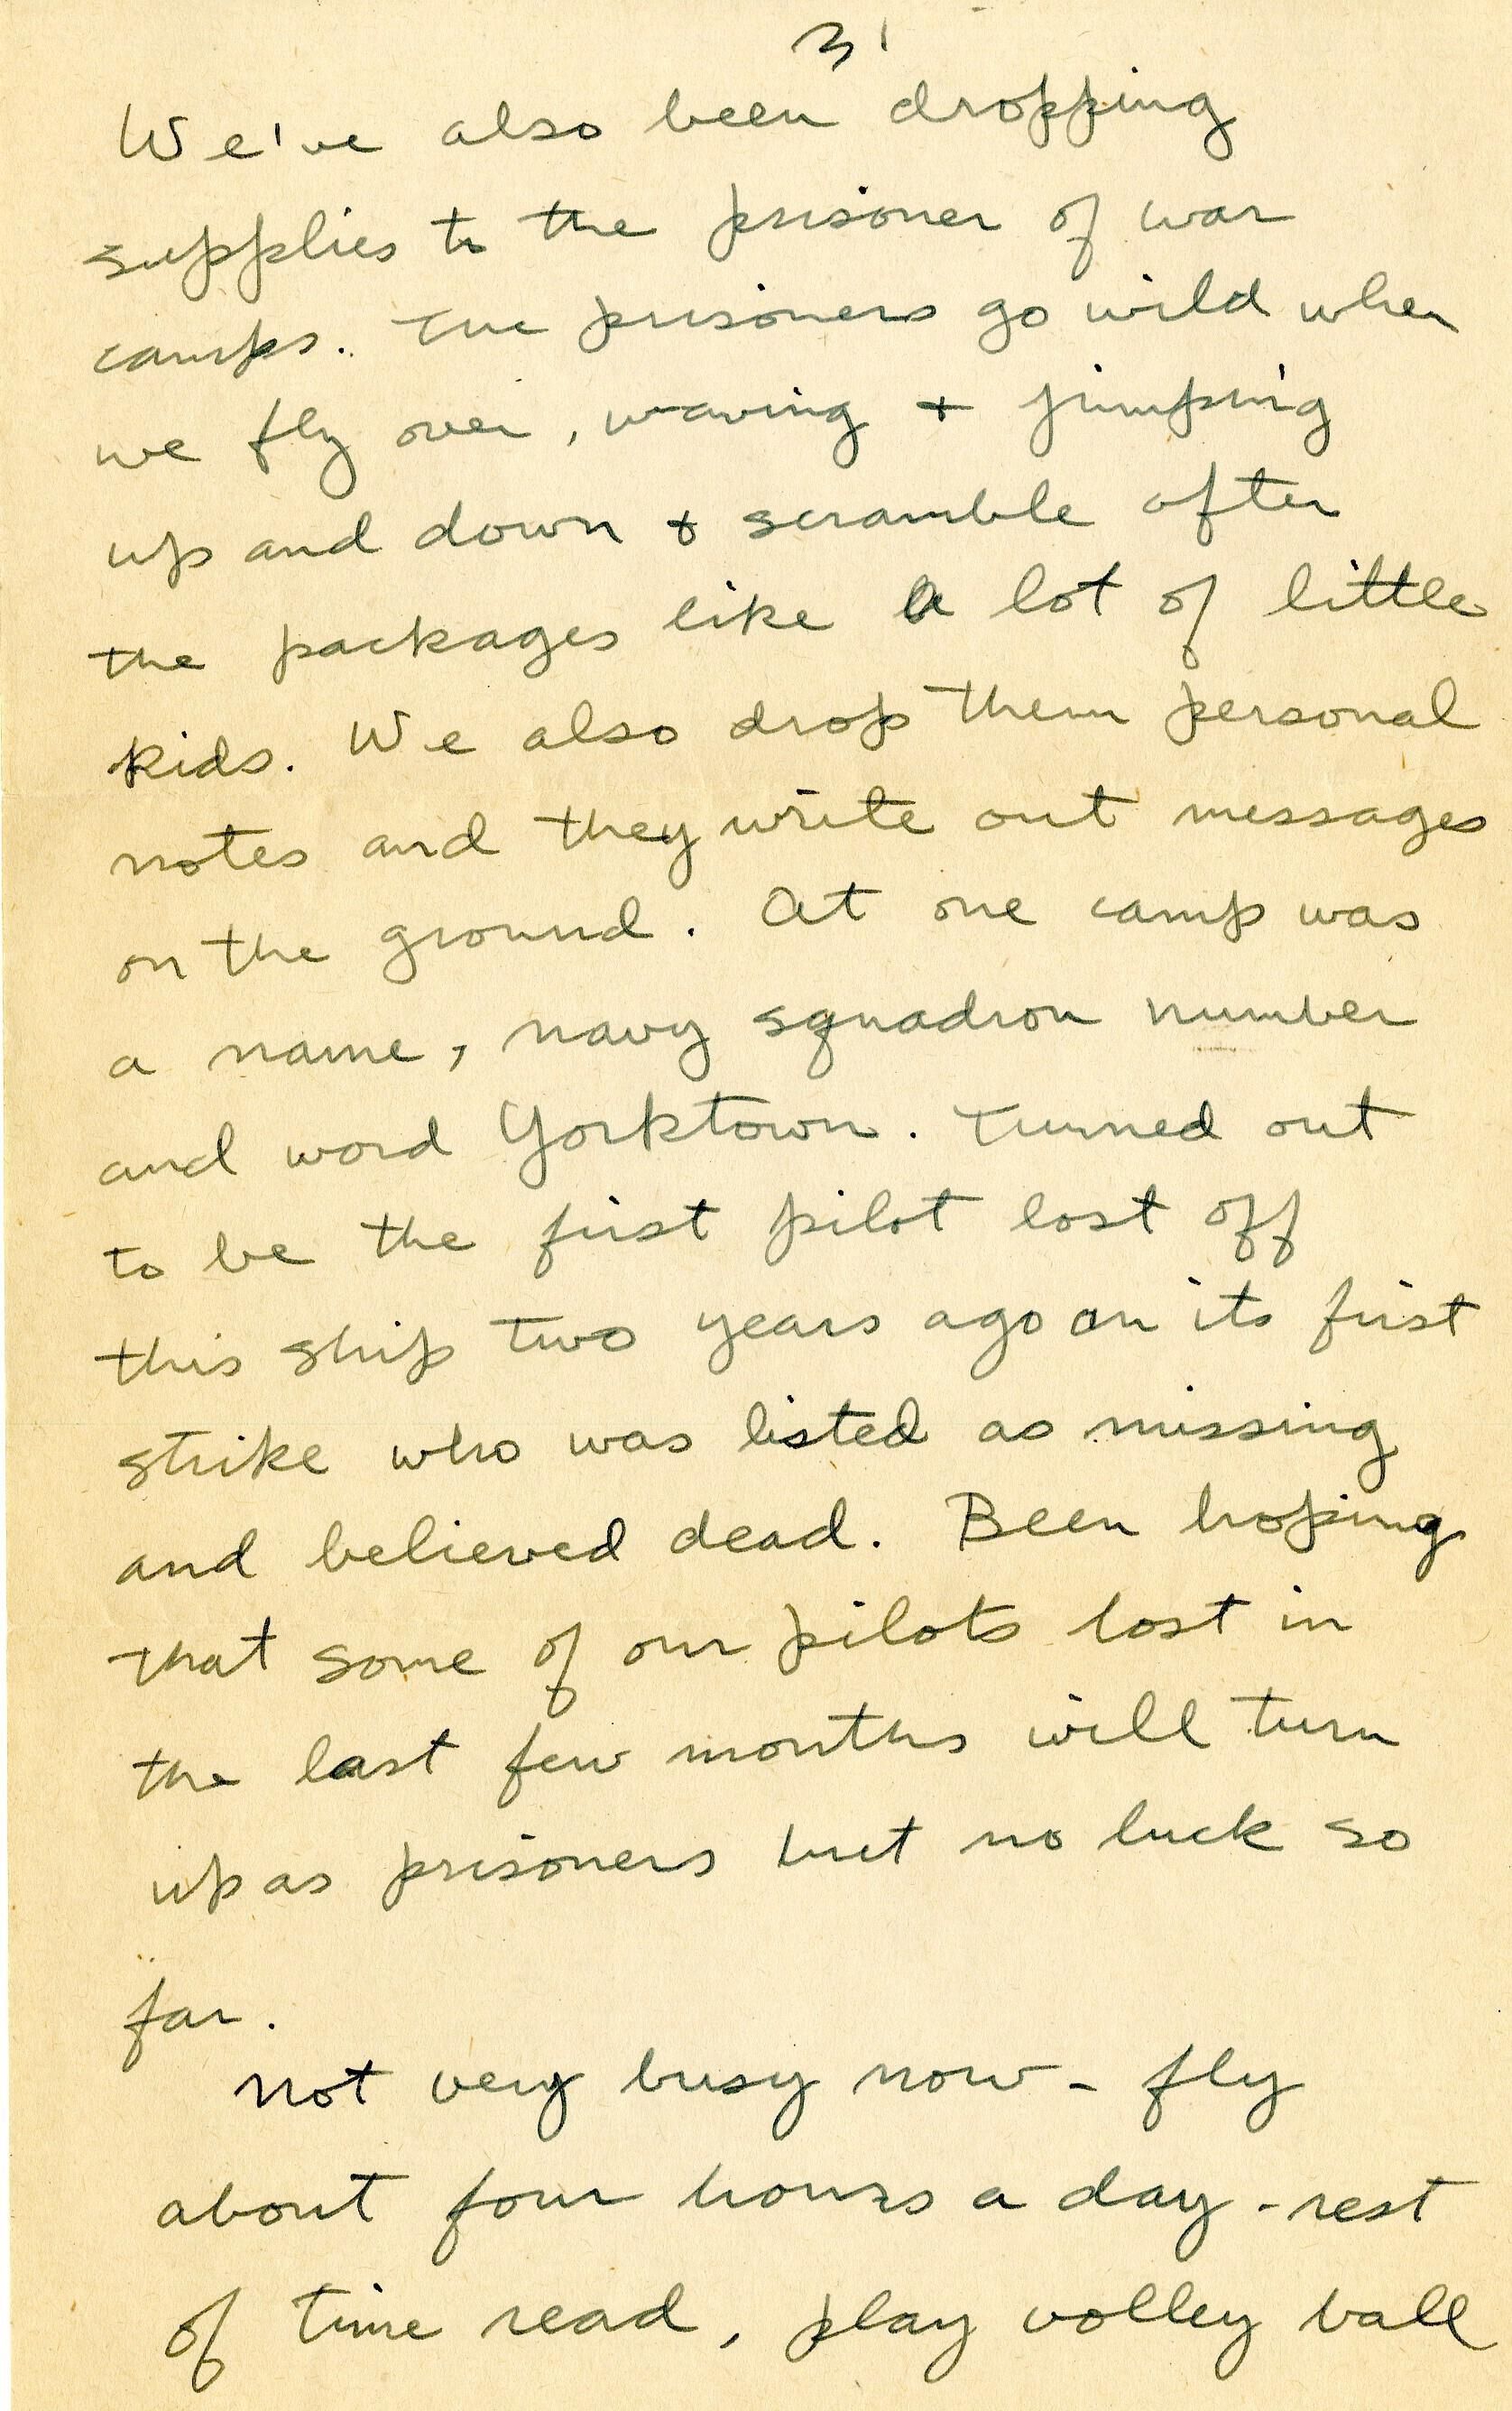 3'
We've also been dropping
supplies to the prisoner of war
camps. The prisoners go wild when
we fly over, waving + jumping
up and down + scramble after
the packages like a lot of little
kids. We also drop them personal
notes and they write out messages
on the ground. At one camp was
a name, navy squadron number
and word Yorktown. Turned out
to be the first pilot lost off
this ship two years ago on its first
strike who was listed as missing
and believed dead. Been hoping
that some of our pilots lost in
the last few months will turn
up as prisoners but no luck so
far.
Not very busy now - fly
about four hours a day - rest
of time read, play volley ball